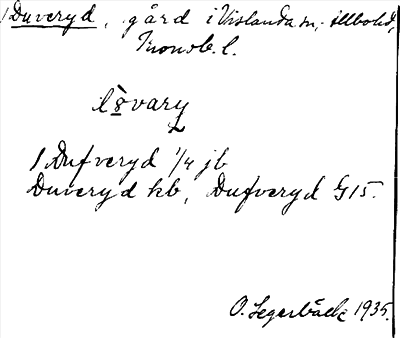 1 Duveryd, gård i Vislanda sn, Allbohd,
Kronob. l.
1 Dufveryd 1/4 jb
Duveryd kb, Dufveryd G 15.
O. Segerbäck 1935.